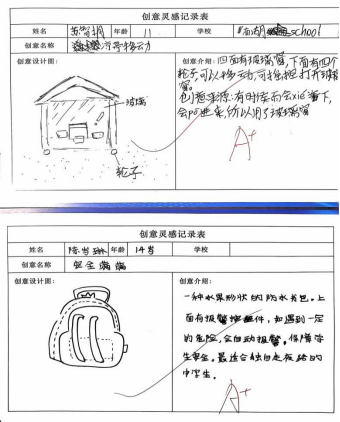 创意灵感记录表
姓名 年龄 11 学校 西湖 school
创意名称 移动
创意设计图:
创意介绍: 四面有玻璃窗,下面有四个
轮子,可以移动,可 打开玻璃
窗。
创意来源:有时候雨会xie着下,
会 进来,所以用了玻璃窗
玻璃
轮子
A+
创意灵感记录表
姓名 陈 琳 年龄 14岁 学校
创意名称 安全
创意设计图:
创意介绍:
一种水果形状的防水书包。上
面有报警 件,如遇到一定
的危险,会自动报警。保障学
生安全。最适合独自走夜路的
中学生。
A+